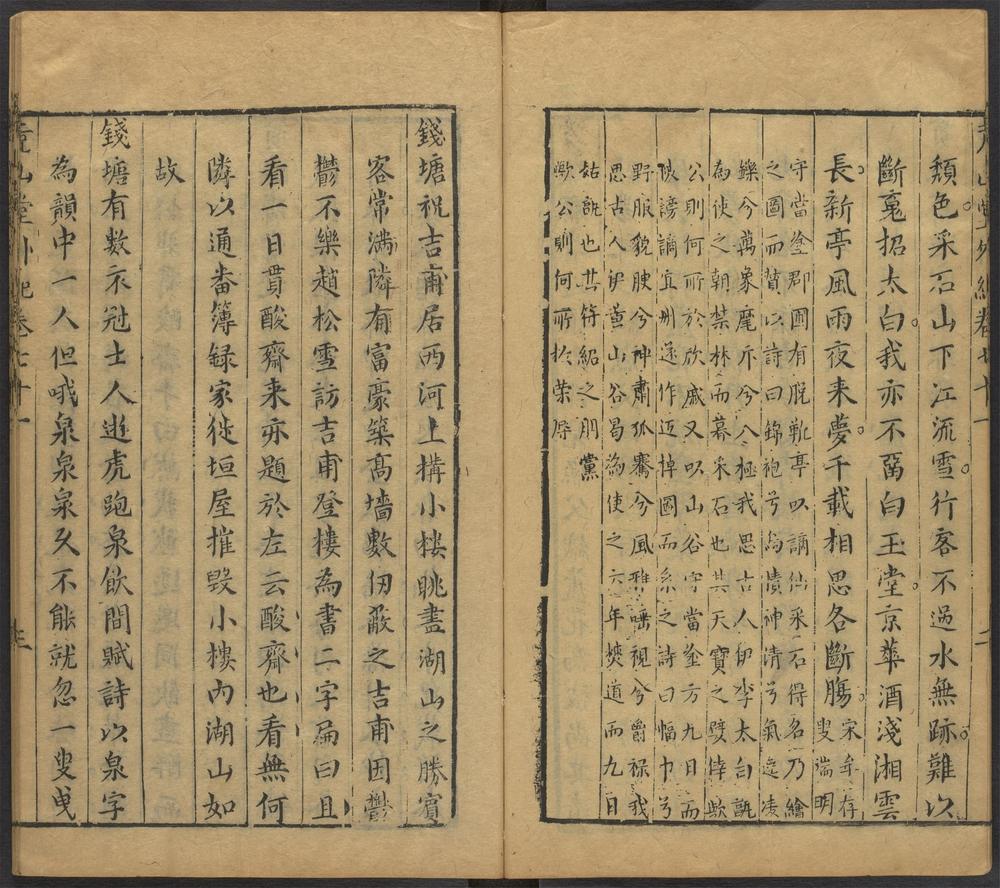 堯山堂外紀卷七十一 二
頹色采石山下江流雪行客不過水無跡難以
斷䰟招太白我亦不留白玉堂京華酒淺湘雲
長新亭風雨夜来夢千載相思各斷膓宋牟存
叟端明
守當塗郡圃有脫靴亭以謫仙采石得名乃繪
之圖而贊以詩曰錦袍兮烏幘神清兮氣逸凌
鑠兮萬象麾斥兮八極我思古人伊李太白孰
為使之朝禁林而暮采石也其天寶之嬖倖歟
公則何所於欣戚又以山谷守當塗方九日而
謗謫宜州遂作返棹圖而系之詩曰幅巾兮
野服貌腴兮神肅孤騫兮風雅唾視兮爵祿我
思古人伊黃山谷曷為使之六年僰道而九日
姑孰也其符紹之朋黨
歟公則何所於榮辱
錢塘祝吉甫居西河上構小樓眺盡湖山之勝賓
客常滿隣有富豪築髙墻數仞蔽之吉甫因鬱
鬱不樂趙松雪訪吉甫登樓為書二字扁曰且
看一日貫酸齋来亦題於左云酸齋也看無何
隣以通番簿録家徙垣屋摧毀小樓內湖山如
故
錢塘有數衣冠士人遊虎跑泉飲間賦詩以泉字
為韻中一人但哦泉泉泉久不能就忽一叟曳
堯山堂外紀卷七十一